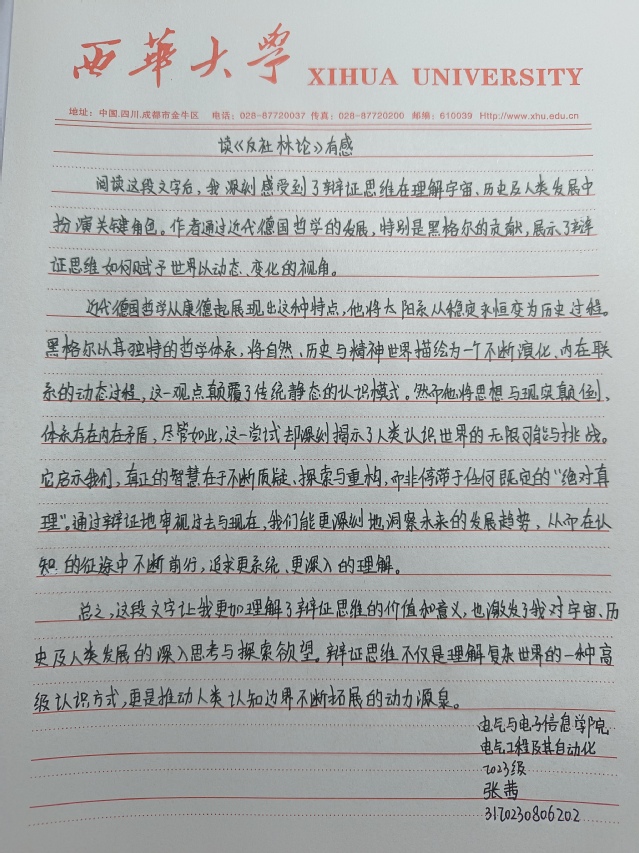 西華大学 XIHUA UNIVERSITY
地址：中国.四川.成都市金牛区 电话：028-87720037 传真：028-87720200 邮编：610039 Http://www.xhu.edu.cn
读《反杜林论》有感
阅读这段文字后，我深刻感受到了辩证思维在理解宇宙、历史及人类发展中
扮演关键角色。作者通过近代德国哲学的发展，特别是黑格尔的贡献，展示了辩
证思维如何赋予世界以动态、变化的视角。
近代德国哲学从康德起展现出这种特点，他将太阳系从稳定永恒变为历史过程。
黑格尔以其独特的哲学体系，将自然、历史与精神世界描绘为一个不断演化、内在联
系的动态过程，这一观点颠覆了传统静态的认识模式。然而他将思想与现实颠倒、
体系存在内在矛盾，尽管如此，这一尝试却深刻揭示了人类认识世界的无限可能与挑战。
它启示我们，真正的智慧在于不断质疑、探索与重构，而非停滞于任何既定的“绝对真
理”。通过辩证地审视过去与现在，我们能更深刻地洞察未来的发展趋势，从而在认
知的征途中不断前行，追求更系统、更深入的理解。
总之，这段文字让我更加理解了辩证思维的价值和意义，也激发了我对宇宙、历
史及人类发展的深入思考与探索欲望。辩证思维不仅是理解复杂世界的一种高
级认识方式，更是推动人类认知边界不断拓展的动力源泉。
电气与电子信息学院
电气工程及其自动化
2023级
张茜
3120230806202